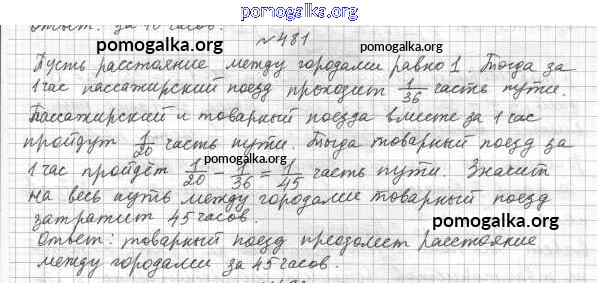 pomogalka.org
Ответ: за 40 часов.
№481
pomogalka.org pomogalka.org
Пусть расстояние между городами равно 1. Тогда за
1 час пассажирский поезд проходит 1/36 часть пути.
Пассажирский и товарный поезда вместе за 1 час
пройдут 1/20 часть пути. Тогда товарный поезд за
pomogalka.org
1 час пройдёт 1/20 - 1/36 = 1/45 часть пути. Значит
на весь путь между городами товарный поезд
затратит 45 часов.
pomogalka.org
Ответ: товарный поезд преодолеет расстояние
между городами за 45 часов.
pomogalka.org